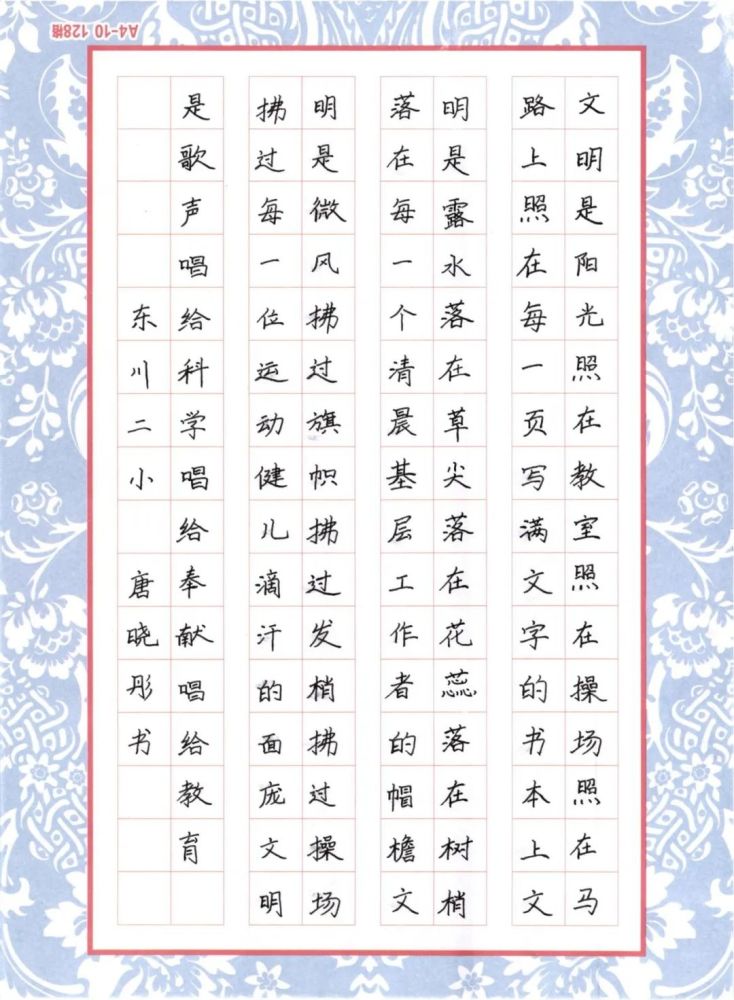 A4-10 128格
文明是阳光照在教室照在操场照在马
路上照在每一页写满文字的书本上文
明是露水落在草尖落在花蕊落在树梢
落在每一个清晨基层工作者的帽檐文
明是微风拂过旗帜拂过发梢拂过操场
拂过每一位运动健儿滴汗的面庞文明
是歌声唱给科学唱给奉献唱给教育
东川二小 唐晓彤书